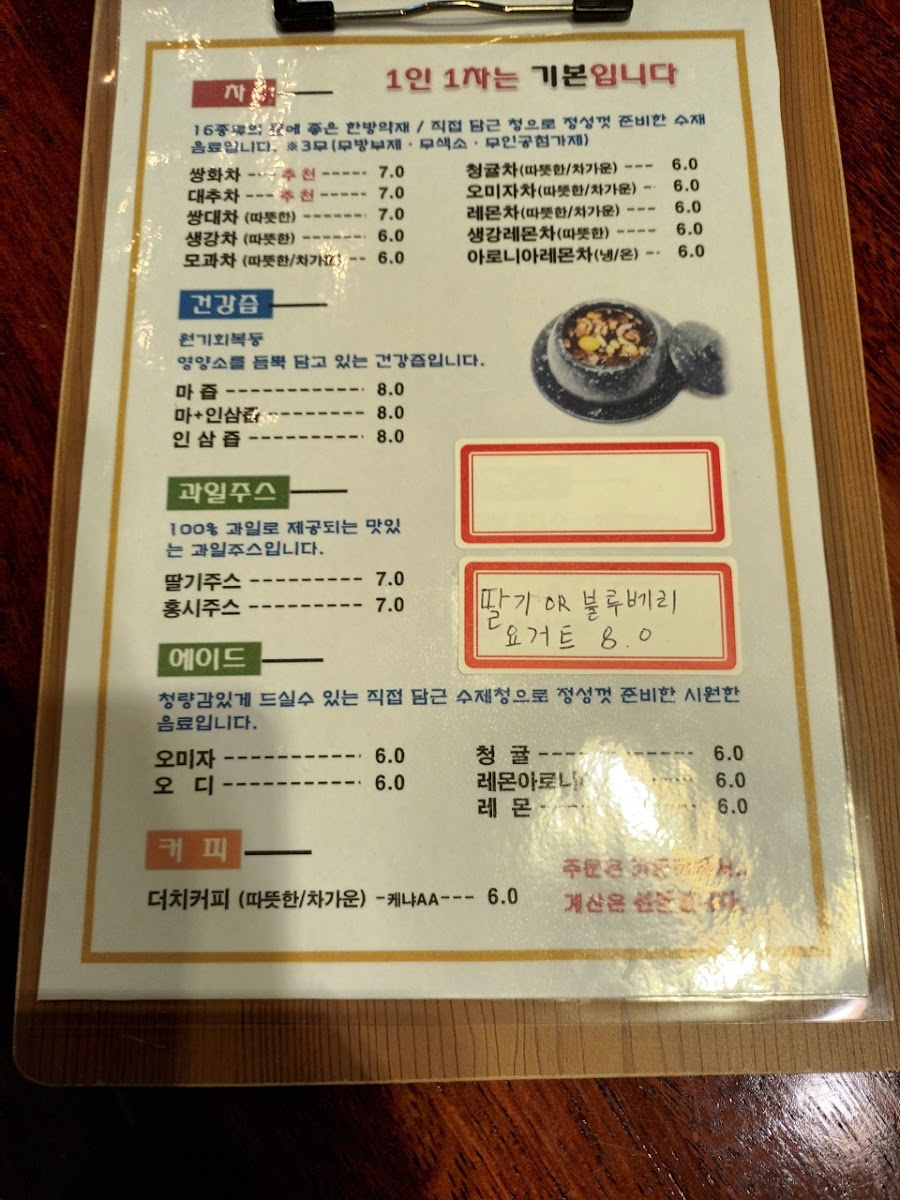 1인 1차는 기본입니다
차
16종류의 몸에 좋은 한방약재 / 직접 담근 청으로 정성껏 준비한 수제
음료입니다. ※3무(무방부제 · 무색소 · 무인공첨가제)
쌍화차 --- 추천 ----- 7.0
대추차 --- 추천 ----- 7.0
쌍대차 (따뜻한) ------- 7.0
생강차 (따뜻한) ------- 6.0
모과차 (따뜻한/차가운) -- 6.0
청귤차(따뜻한/차가운) --- 6.0
오미자차(따뜻한/차가운) - 6.0
레몬차(따뜻한/차가운) --- 6.0
생강레몬차(따뜻한) ---- 6.0
아로니아레몬차(냉/온) -- 6.0
건강즙
원기회복등
영양소를 듬뿍 담고 있는 건강즙입니다.
마 즙 --------------- 8.0
마+인삼즙 ---------- 8.0
인 삼 즙 ------------ 8.0
과일주스
100% 과일로 제공되는 맛있
는 과일주스입니다.
딸기주스 ---------- 7.0
홍시주스 ---------- 7.0
딸기 OR 블루베리
요거트 8.0
에이드
청량감있게 드실수 있는 직접 담근 수제청으로 정성껏 준비한 시원한
음료입니다.
오미자 ------------- 6.0
오 디 ------------- 6.0
청 귤 -------------- 6.0
레몬아로니 ---- 6.0
레 몬 ---- 6.0
커 피
더치커피 (따뜻한/차가운) -케냐AA--- 6.0
주문은
계산은